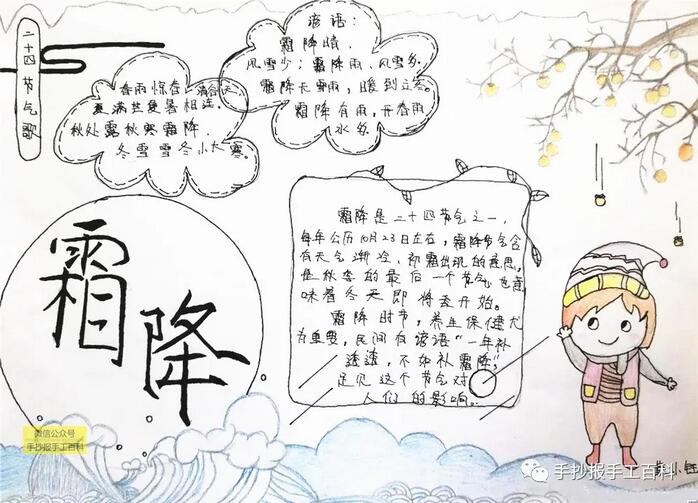 二十四节气歌
谚语：
霜降晴，
风雪少；霜降雨，风雪多。
霜降无雨，暖到立冬。
霜降有雨，开春雨
水多
春雨惊春清谷天
夏满芒夏暑相连
秋处露秋寒霜降
冬雪雪冬小大寒。
霜降
霜降是二十四节气之一，
每年公历10月23日左右，霜降节气含
有天气渐冷、初霜出现的意思，
是秋季的最后一个节气，也意
味着冬天即将去开始。
霜降时节，养生保健尤
为重要，民间有谚语“一年补
透透，不如补霜降”，
足见这个节气对
人们的影响。
微信公众号
手抄报手工百科
手抄报手工百科